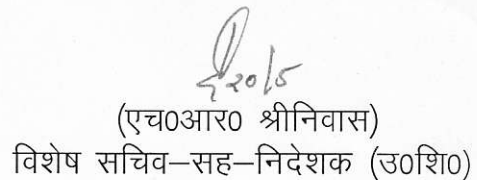 20/5
(एच0आर0 श्रीनिवास)
विशेष सचिव–सह–निदेशक (उ0शि0)